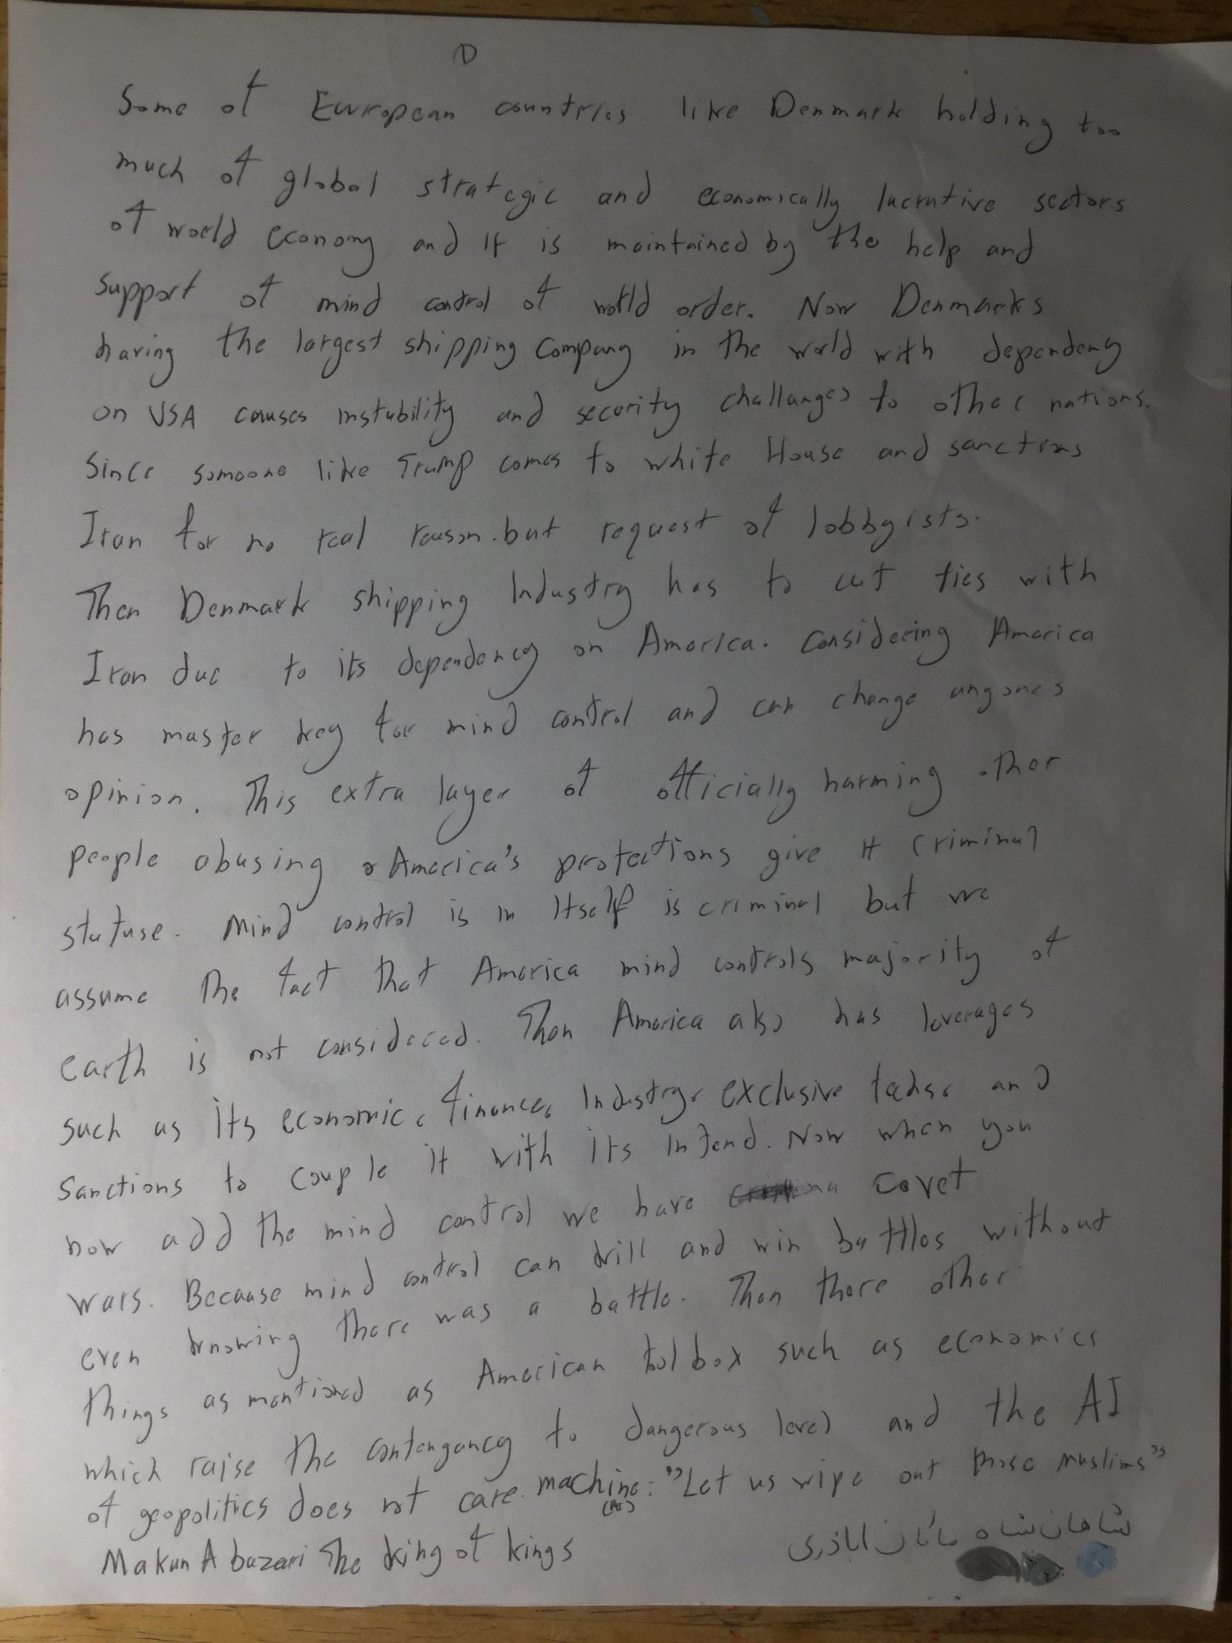 1
Some of European countries like Denmark holding too
much of global strategic and economically lucrative sectors
of world economy and it is maintained by the help and
support of mind control of world order. Now Denmarks
having the largest shipping company in the world with dependency
on USA causes instability and security challanges to other nations.
Since someone like Trump comes to white House and sanctions
Iran for no real reason but request of lobbyists.
Then Denmark shipping Industry has to cut ties with
Iran due to its dependency on America. Considering America
has master key for mind control and can change anyones
opinion. This extra layer of officially harming other
people abusing America's protections give it criminal
statuse. Mind control is in Itself is criminal but we
assume the fact that America mind controls majority of
earth is not considered. Then America also has leverages
such as its economic, finance, Industry, exclusive techs, and
sanctions to couple it with its intend. Now when you
now add the mind control we have covet
wars. Because mind control can drill and win battles without
even knowing there was a battle. Then there other
things as mentioned as American toolbox such as economics
which raise the contengancy to dangerous level and the AI
of geopolitics does not care. machine: "Let us wipe out those muslims"
(AI)
Makan Abazari The king of kings شاهان شاه ماکان اباذری